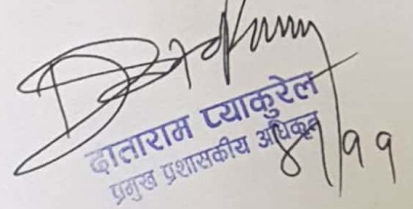 दाताराम प्याकुरेल
प्रमुख प्रशासकीय अधिकृत
४/११